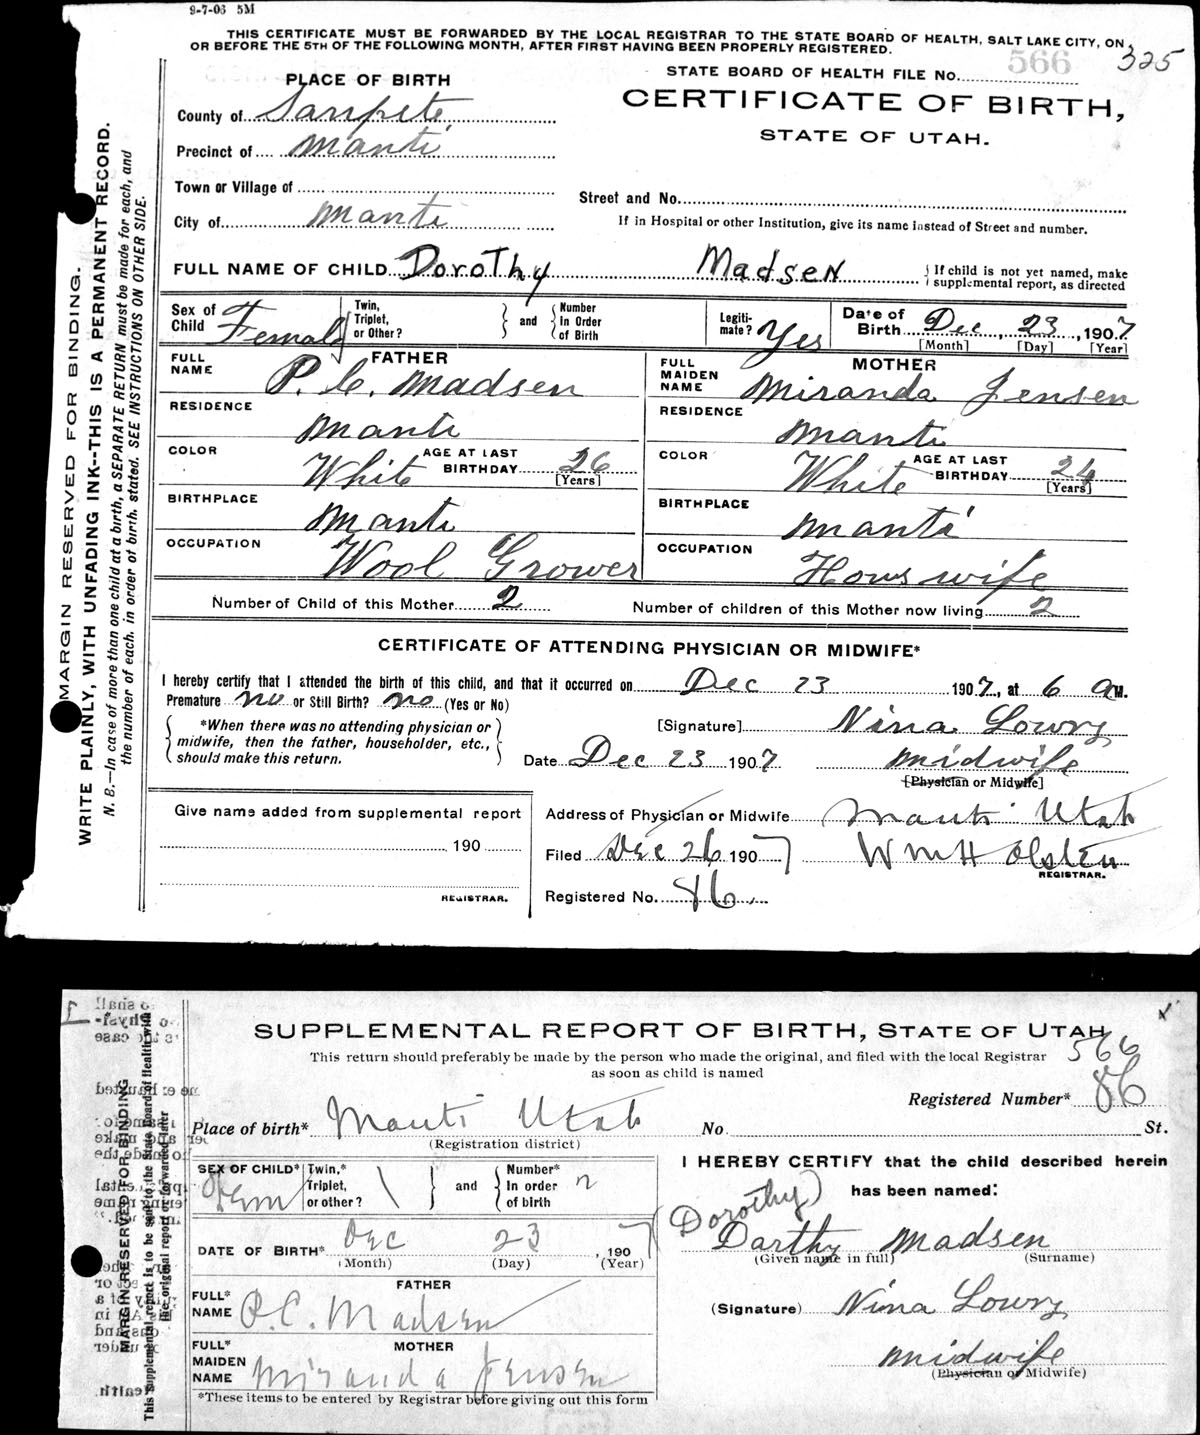 9-7-06 5M
THIS CERTIFICATE MUST BE FORWARDED BY THE LOCAL REGISTRAR TO THE STATE BOARD OF HEALTH, SALT LAKE CITY, ON
OR BEFORE THE 5TH OF THE FOLLOWING MONTH, AFTER FIRST HAVING BEEN PROPERLY REGISTERED.
325
STATE BOARD OF HEALTH FILE No. 566
PLACE OF BIRTH
CERTIFICATE OF BIRTH,
STATE OF UTAH.
County of Sanpete
Precinct of Manti
Town or Village of
Street and No.
City of Manti
If in Hospital or other Institution, give its name instead of Street and number.
FULL NAME OF CHILD Dorothy Madsen { If child is not yet named, make supplemental report, as directed
Sex of Child Female Twin, Triplet, or Other? } and { Number In Order of Birth Legiti-mate? Yes Date of Birth Dec 23, 1907
[Month] [Day] [Year]
FATHER
FULL NAME P. C. Madsen
RESIDENCE Manti
COLOR White AGE AT LAST BIRTHDAY 26 [Years]
BIRTHPLACE Manti
OCCUPATION Wool Grower
MOTHER
FULL MAIDEN NAME Miranda Jensen
RESIDENCE Manti
COLOR White AGE AT LAST BIRTHDAY 24 [Years]
BIRTHPLACE Manti
OCCUPATION Hous wife
Number of Child of this Mother 2 Number of children of this Mother now living 2
CERTIFICATE OF ATTENDING PHYSICIAN OR MIDWIFE*
I hereby certify that I attended the birth of this child, and that it occurred on Dec 23 1907, at 6 a M.
Premature no or Still Birth? no (Yes or No)
*When there was no attending physician or
midwife, then the father, householder, etc.,
should make this return.
[Signature] Nina Lowry
Date Dec 23 1907 midwife
[Physician or Midwife]
Give name added from supplemental report
190
REGISTRAR.
Address of Physician or Midwife Manti Utah
Filed Dec 26 1907 Wm H Olsten
REGISTRAR.
Registered No. 86
MARGIN RESERVED FOR BINDING.
WRITE PLAINLY, WITH UNFADING INK--THIS IS A PERMANENT RECORD.
N. B.—In case of more than one child at a birth, a SEPARATE RETURN must be made for each, and
the number of each, in order of birth, stated. SEE INSTRUCTIONS ON OTHER SIDE.
SUPPLEMENTAL REPORT OF BIRTH, STATE OF UTAH
This return should preferably be made by the person who made the original, and filed with the local Registrar
as soon as child is named
566
Registered Number* 86
Place of birth* Manti Utah No. St.
(Registration district)
SEX OF CHILD* Fem Twin,* Triplet, or other? \ } and { Number* In order of birth 2
DATE OF BIRTH* Dec 23, 1907
(Month) (Day) (Year)
FATHER
FULL* NAME P. C. Madsen
MOTHER
FULL* MAIDEN NAME Miranda Jensen
*These items to be entered by Registrar before giving out this form
I HEREBY CERTIFY that the child described herein
has been named:
(Dorothy)
Darthy Madsen
(Given name in full) (Surname)
(Signature) Nina Lowry
midwife
(Physician or Midwife)
MARGIN RESERVED FOR BINDING
This supplemental report is to be sent to the State Board of Health with
the original report or forwarded later